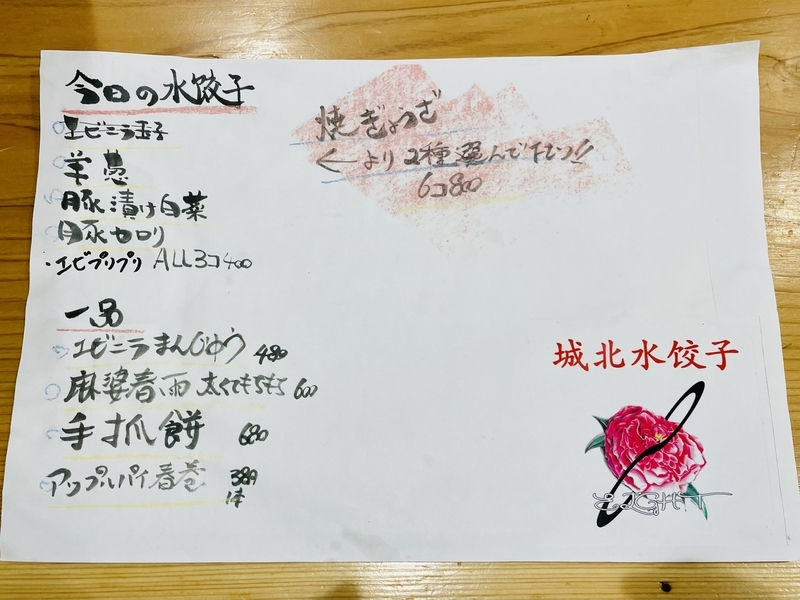 今日の水餃子
エビニラ玉子
羊葱
豚漬け白菜
豚セロリ
・エビプリプリ ALL3コ400
焼ぎょうざ
←より2種選んで下さい!!
6コ800
一品
エビニラまんじゅう 480
麻婆春雨 太くてもちもち 600
手抓餅 680
アップルパイ春巻 389
1本
城北水饺子
EIGHT